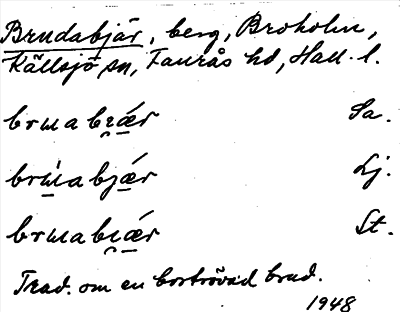 Brudabjär, berg, Broholm,
Källsjö sn, Faurås hd, Hall. l.
Sa.
Lj.
St.
Trad. om en bortrövad brud.
1948